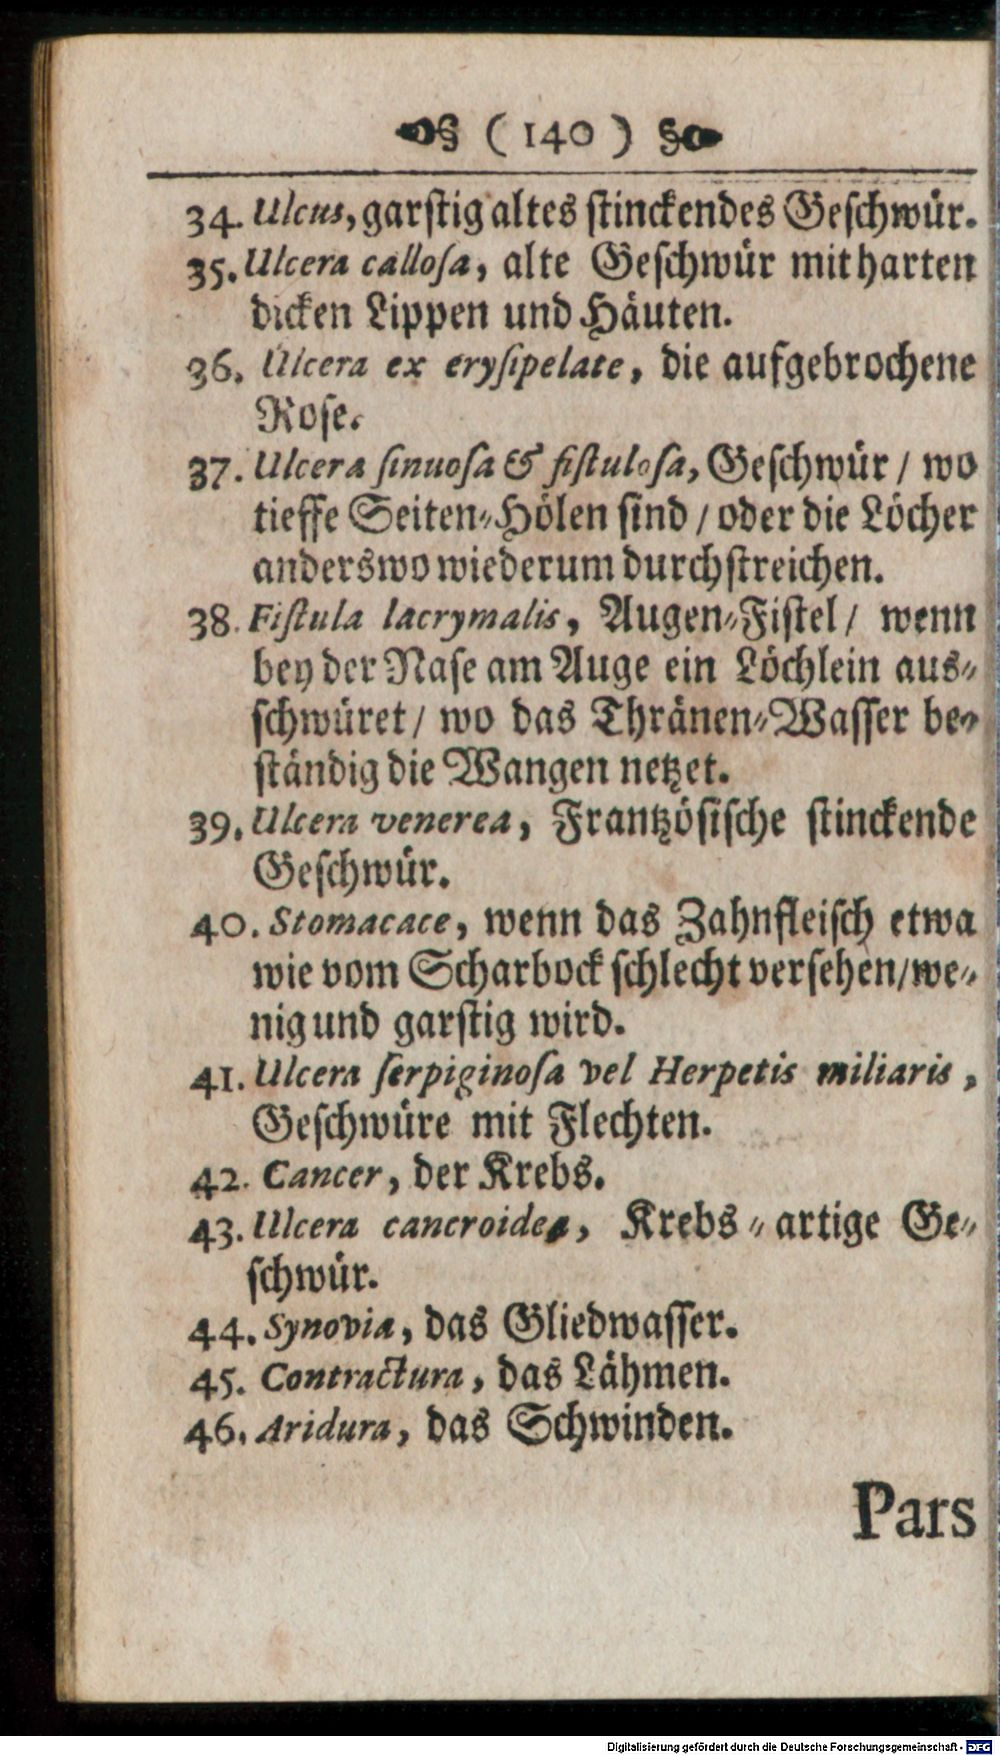 § ( 140 ) §
34. Ulcus, garſtig altes ſtinckendes Geſchwür.
35. Ulcera calloſa, alte Geſchwür mit harten
dicken Lippen und Häuten.
36. Ulcera ex eryſipelate, die aufgebrochene
Roſe.
37. Ulcera ſinuoſa & fiſtuloſa, Geſchwür / wo
tieffe Seiten-Hölen ſind / oder die Löcher
anderswo wiederum durchſtreichen.
38. Fiſtula lacrymalis, Augen-Fiſtel / wenn
bey der Naſe am Auge ein Löchlein aus-
ſchwüret / wo das Thränen-Waſſer be-
ſtändig die Wangen netzet.
39. Ulcera venerea, Frantzöſiſche ſtinckende
Geſchwür.
40. Stomacace, wenn das Zahnfleiſch etwa
wie vom Scharbock ſchlecht verſehen / we-
nig und garſtig wird.
41. Ulcera ſerpiginoſa vel Herpetis miliaris,
Geſchwüre mit Flechten.
42. Cancer, der Krebs.
43. Ulcera cancroidea, Krebs-artige Ge-
ſchwür.
44. Synovia, das Gliedwaſſer.
45. Contractura, das Lähmen.
46. Aridura, das Schwinden.
Pars
Digitalisierung gefördert durch die Deutsche Forschungsgemeinschaft - DFG